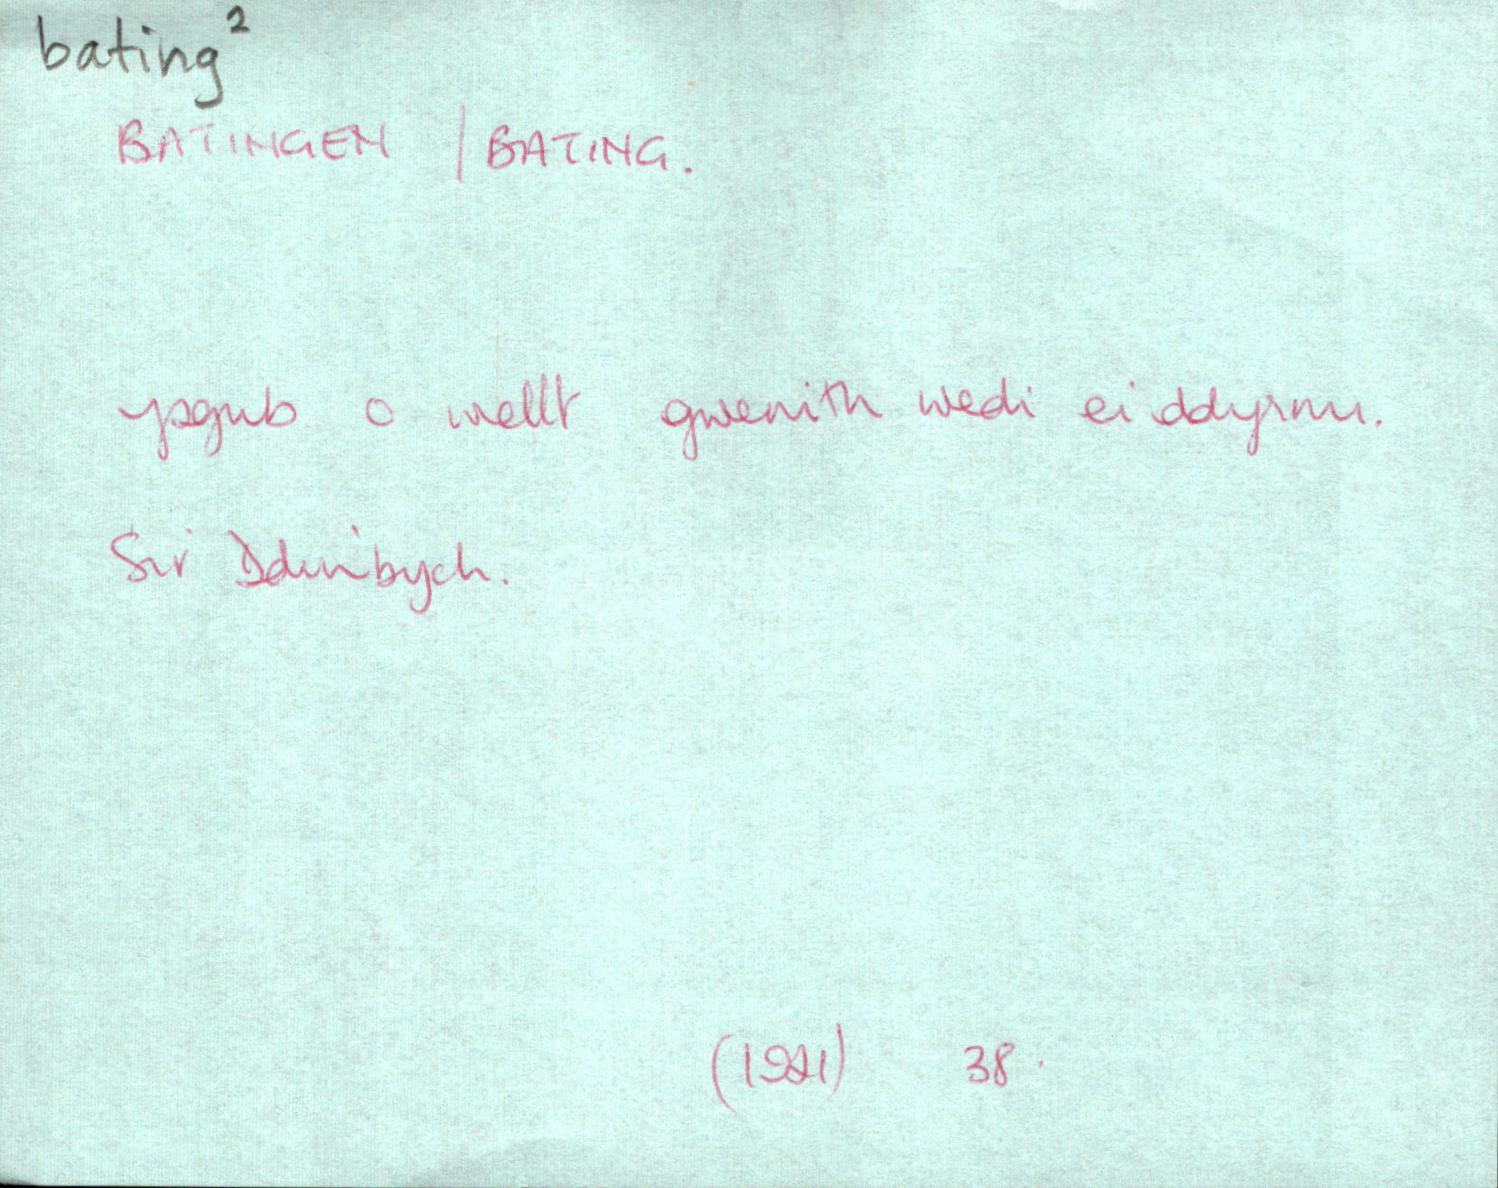 bating²
BATINGEN | BATING.
ysgub o wellt gwenith wedi ei ddyrnu.
Sir Ddinbych.
38.